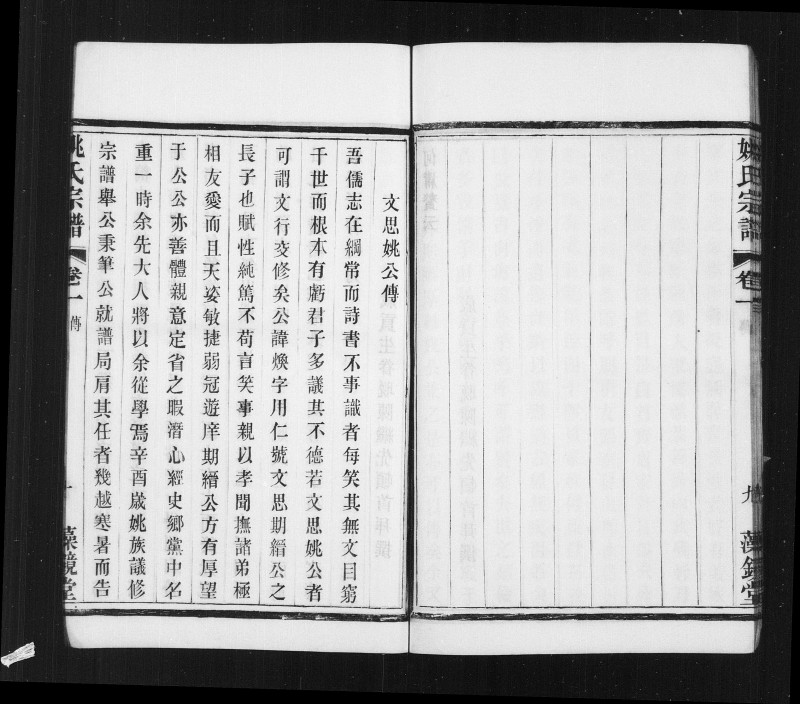 姚氏宗譜
卷一
九
藻鏡堂
文思姚公傳
吾儒志在綱常而詩書不事識者每笑其無文目窮
千世而根本有虧君子多議其不德若文思姚公者
可謂文行交修矣公諱煥字用仁號文思期縉公之
長子也賦性純篤不苟言笑事親以孝聞撫諸弟極
相友愛而且天姿敏捷弱冠遊庠期縉公方有厚望
于公公亦善體親意定省之暇潛心經史鄉黨中名
重一時余先大人將以余從學焉辛酉歲姚族議修
宗譜舉公秉筆公就譜局肩其任者幾越寒暑而告
姚氏宗譜
卷一
傳
十
藻鏡堂